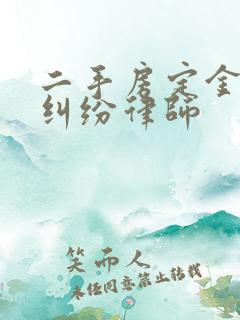 二手房定金
纠纷律师
笑而人
未经同意禁止转载